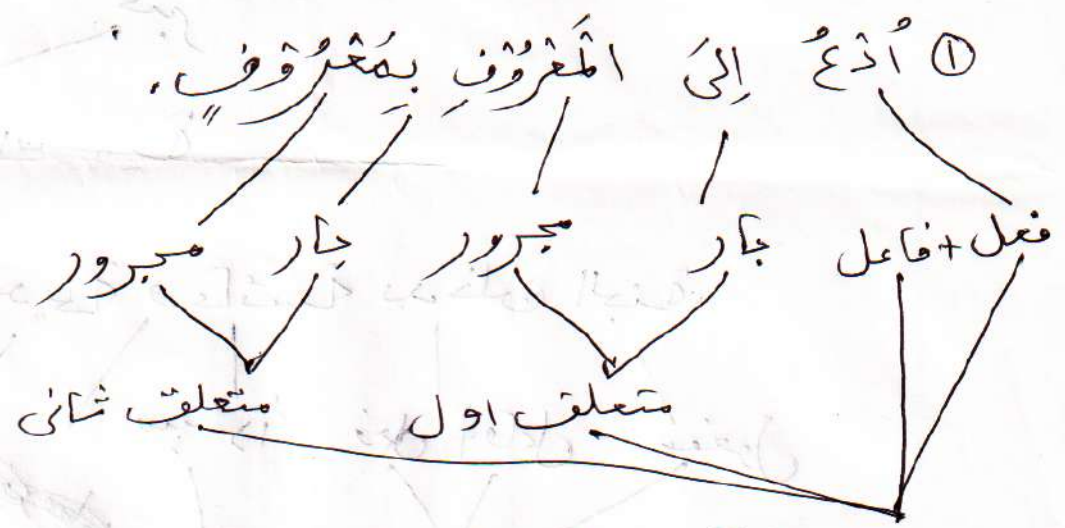 ① اُدْعُ إِلىَ الْمَعْرُوْفِ بِمَعْرُوْفٍ.
فعل + فاعل جار مجرور جار مجرور
متعلق اول متعلق ثانی